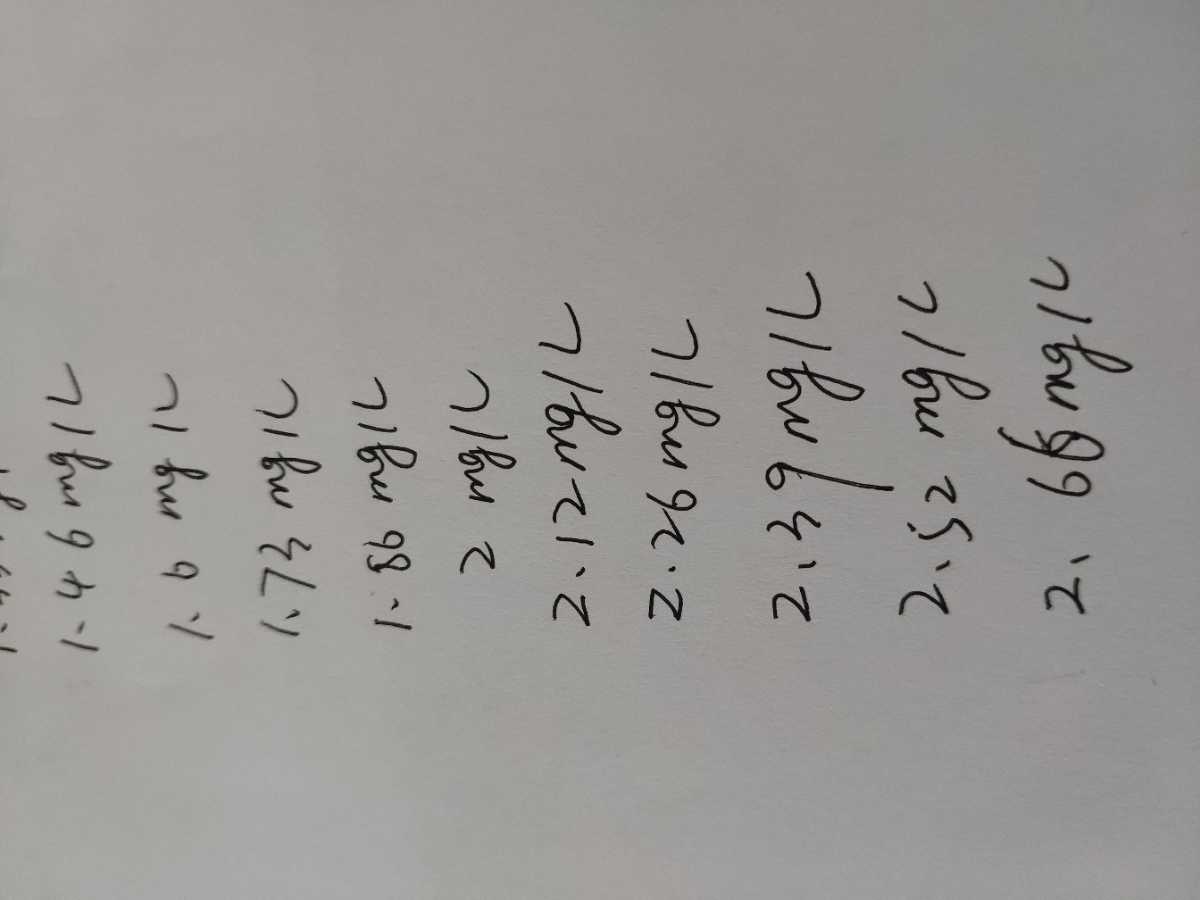 1.46 mg/L
1.6 mg/L
1.73 mg/L
1.86 mg/L
2 mg/L
2.12 mg/L
2.26 mg/L
2.39 mg/L
2.52 mg/L
2.68 mg/L